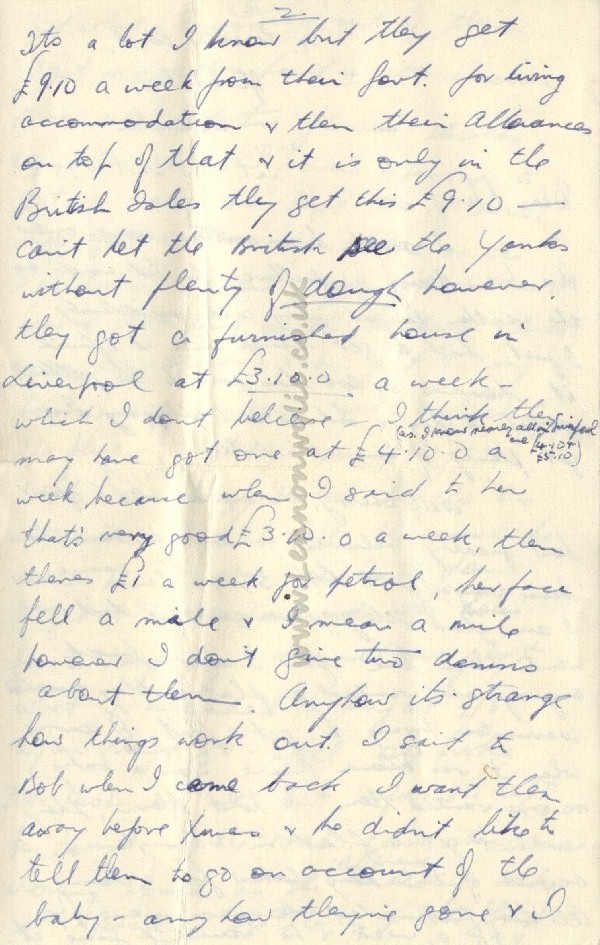 2
Its a lot I know but they get
£9.10 a week from their Govt. for living
accommodation & then their allowances
on top of that & it is only in the
British Isles they get this £9.10 —
can't let the British see the Yanks
without plenty of dough however.
they got a furnished house in
Liverpool at £3.10.0 a week –
which I dont believe – I think they
(as I know many all in Liverpool
may have got one at £4.10.0 a are £4.10 + £5.10)
week because when I said to her
that's very good £3.10.0 a week, then
theres £1 a week for petrol, her face
fell a mile & I mean a mile
however I don't give two damns
about them. Anyhow its strange
how things work out. I said to
Bob when I came back I want them
away before Xmas & he didn't like to
tell them to go on account of the
baby – anyhow they're gone & I
www.lennonwylie.co.uk